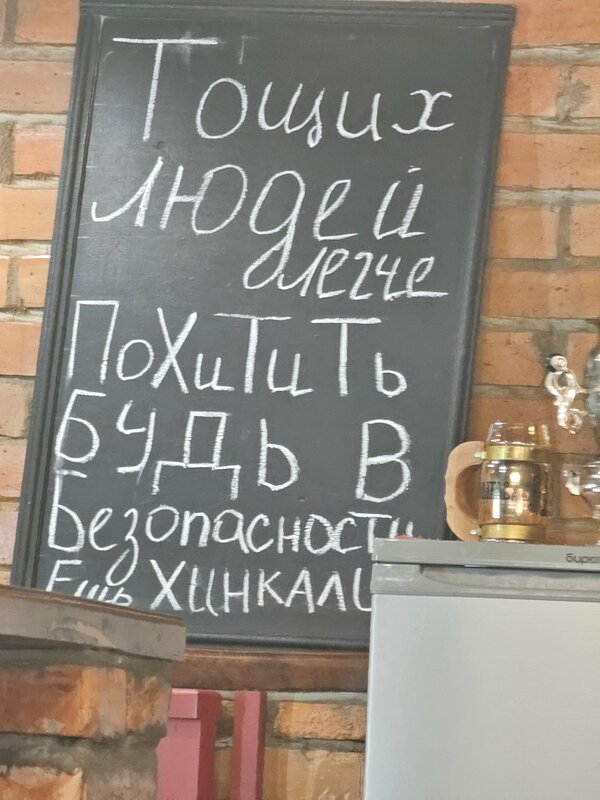 Тощих
людей
легче
Похитить
Будь в
Безопасности
Ешь Хинкали
бирю